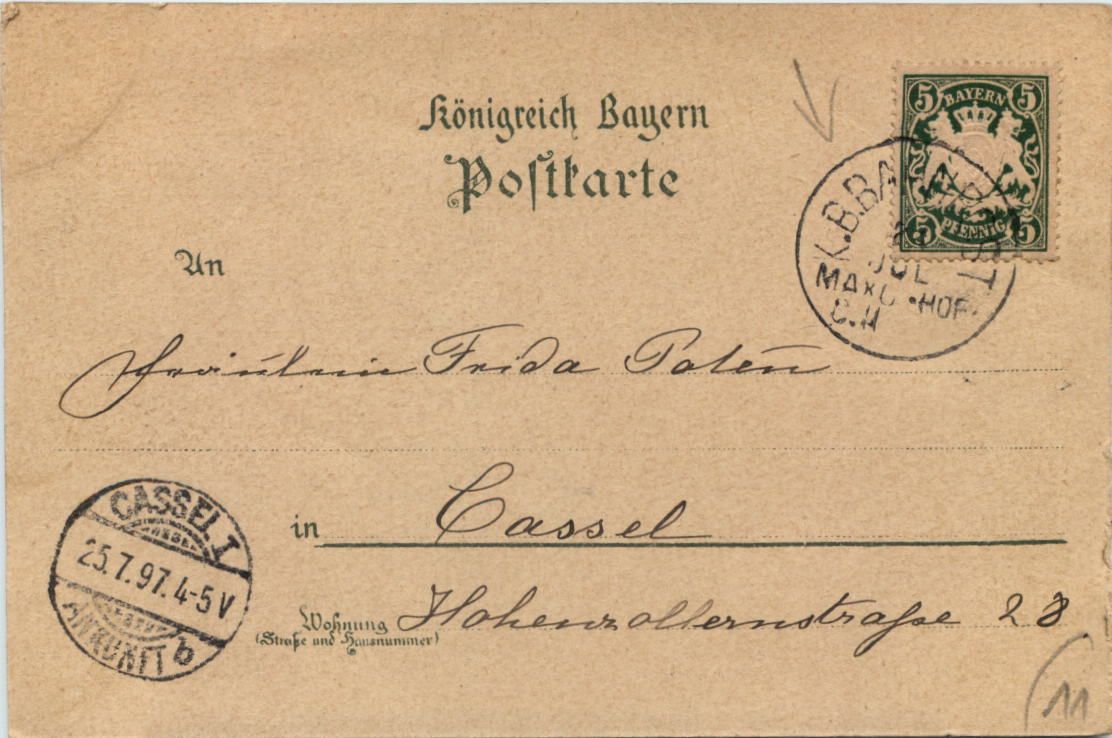 Königreich Bayern
Postkarte
5 BAYERN 5
5 PFENNIG 5
K.B.BA
JUL
HOF
An
Fräulein Frida Poten
in Cassel
Wohnung Hohenzollernstraße 28
(Straße und Hausnummer)
CASSEL I
25.7.97. 4-5 V
ANKUNFT b
11